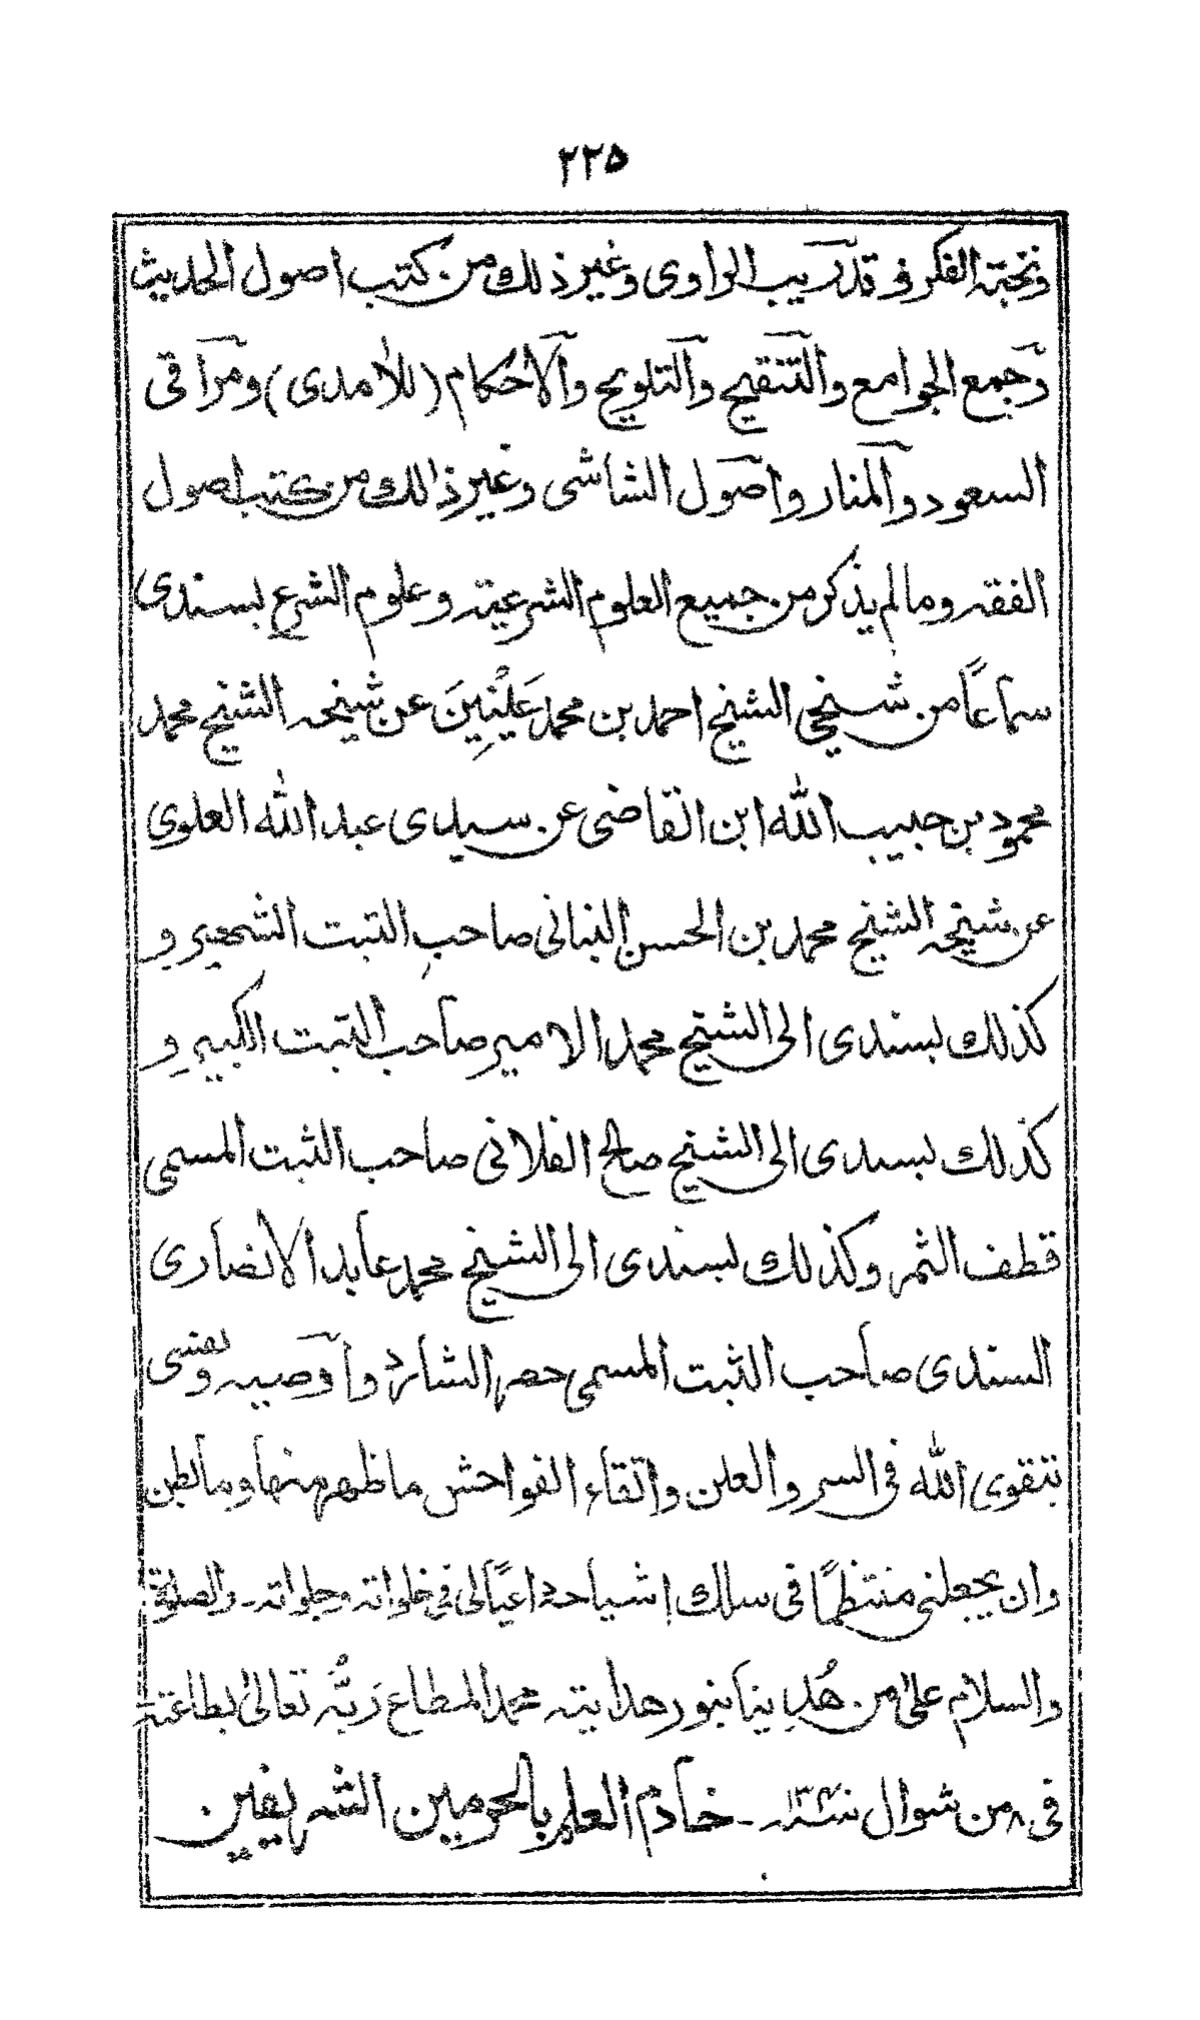 ۲۲۵
ونخبة الفكر و تدريب الراوى وغير ذلك من كتب اصول الحديث
وجمع الجوامع والتنقيح والتلويح والاحكام (للآمدى) ومراقى
السعود والمنار واصول الشاشى وغير ذالك من كتب اصول
الفقه وما لم يذكر من جميع العلوم الشرعية وعلوم الشرع بسندى
سماعاً من شيخي الشيخ احمد بن محمد عَلَيْنِينَ عن شيخه الشيخ محمد
محمود بن حبيب الله ابن القاضى عن سيدى عبد الله العلوي
عن شيخه الشيخ محمد بن الحسن البنانى صاحب الثبت الشهير و
كذلك بسندى الى الشيخ محمد الامير صاحب الثبت الكبير و
كذلك بسندى الى الشيخ صالح الفلانى صاحب الثبت المسمى
قطف الثمر وكذلك بسندى الى الشيخ محمد عابد الانصارى
السندى صاحب الثبت المسمى حصر الشارد وأوصيه ونفسى
بتقوى الله فى السر والعلن واتقاء الفواحش ما ظهر منها وما بطن
وان يجعلنى منتظمًا فى سلك اشياخه داعيًا لى فى خلواته وجلواته ـ والصلوة
والسلام على من هُدِينا بنور هدايته محمد المطاع رَبُّه تعالىٰ بطاعته
فى ۸ من شوال سنه ـ خادم العلم بالحرمين الشريفين